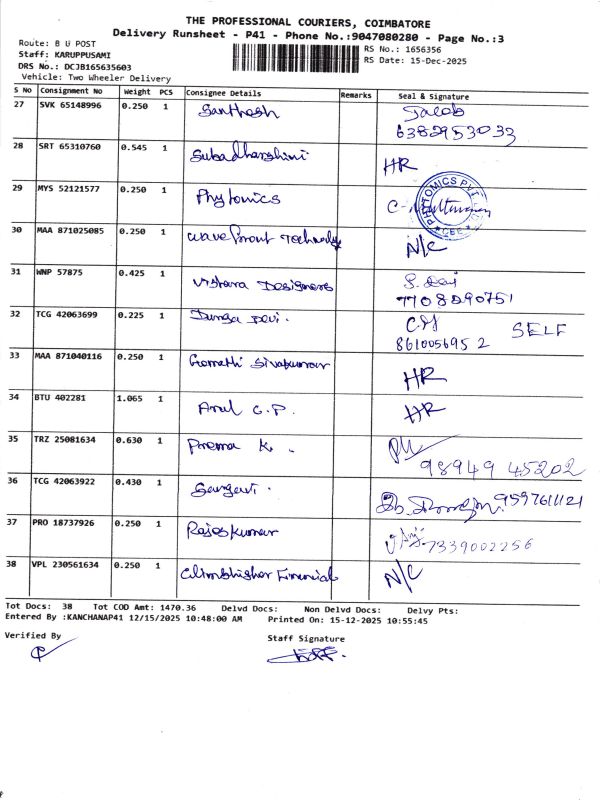 THE PROFESSIONAL COURIERS, COIMBATORE
Delivery Runsheet - P41 - Phone No.:9047080280 - Page No.:3
Route: B U POST
RS No.: 1656356
Staff: KARUPPUSAMI
RS Date: 15-Dec-2025
DRS No.: DCJB165635603
Vehicle: Two Wheeler Delivery
S No Consignment No Weight PCS Consignee Details Remarks Seal & Signature
27 SVK 65148996 0.250 1 Santhosh Jacob
6382953033
28 SRT 65310760 0.545 1 Subadharshini HR
29 MYS 52121577 0.250 1 Phytomics
PHYTOMICS PVT
CBE
30 MAA 871025085 0.250 1 wave front Technology N/C
31 WNP 57875 0.425 1 Vistara Designers
7708290751
32 TCG 42063699 0.225 1 Durga Devi.
8610056952 SELF
33 MAA 871040116 0.250 1 Gomathi Sivakumar HR
34 BTU 402281 1.065 1 Arul G.P. HR
35 TRZ 25081634 0.630 1 Prema K.
98949 45202
36 TCG 42063922 0.430 1 9597611121
37 PRO 18737926 0.250 1 Rajeskumar 7339002256
38 VPL 230561634 0.250 1 Financial N/C
Tot Docs: 38 Tot COD Amt: 1470.36 Delvd Docs: Non Delvd Docs: Delvy Pts:
Entered By :KANCHANAP41 12/15/2025 10:48:00 AM Printed On: 15-12-2025 10:55:45
Verified By
Staff Signature